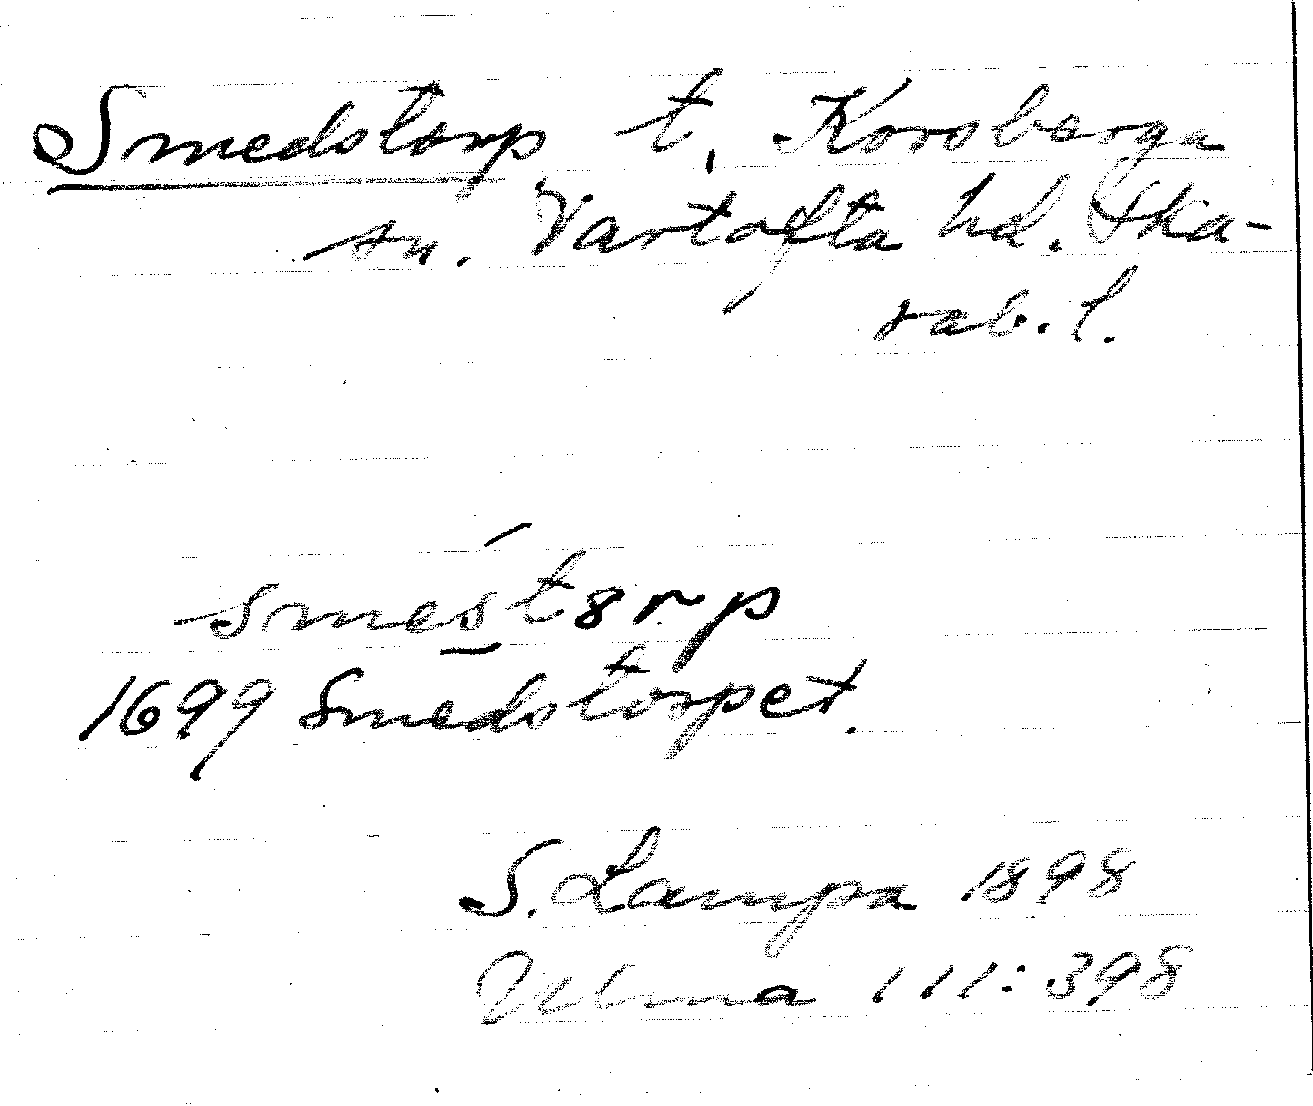 Smedstorp t. Korsberga
sn. Vartofta hd. Ska-
rab. l.
smes̲t8rp
1699 Smedstorpet.
S. Lampa 1898
Ulma 111:398